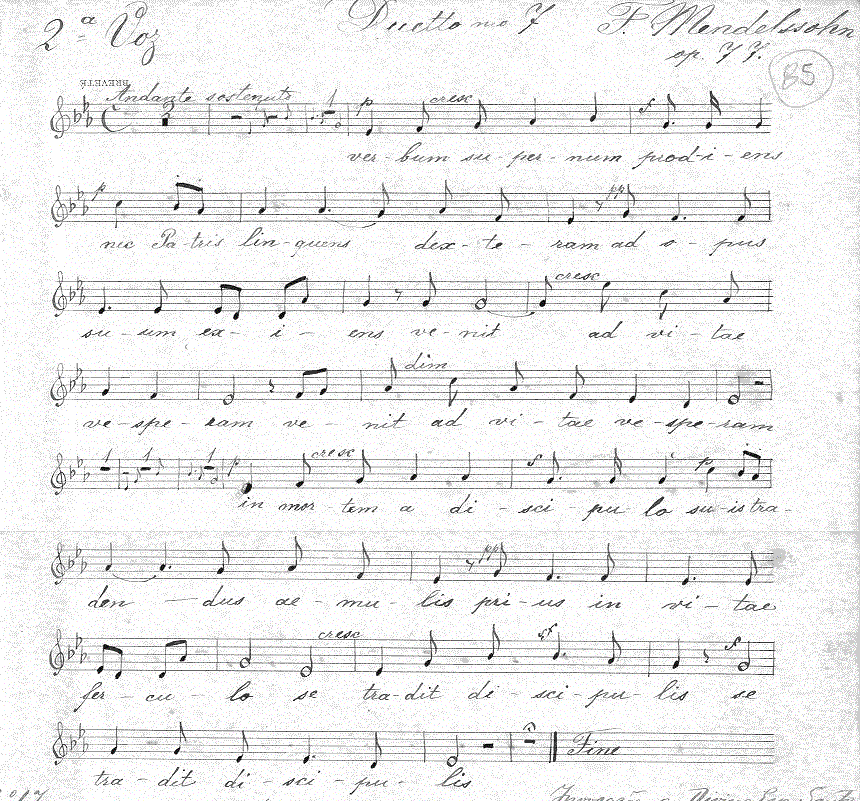 2ª Voz Duetto no 7 F. Mendelssohn
op. 77.
85
BREVETÉ
Andante sostenuto 1 p cresc sf
ver-bum su-per-num prod-i-ens
p pp
nec Pa-tris lin-quens dex-te-ram ad o-pus
cresc
su-um ex-i-ens ve-nit ad vi-tae
dim
ve-spe-ram ve-nit ad vi-tae ve-spe-ram
1 1 1 p cresc sf p
in mor-tem a di-sci-pu lo su-is tra-
pp
den-dus ae-mu-lis pri-us in vi-tae
cresc sf sf
fer-cu-lo se tra-dit di-sci-pu-lis se
Fine
tra-dit di-sci-pu-lis